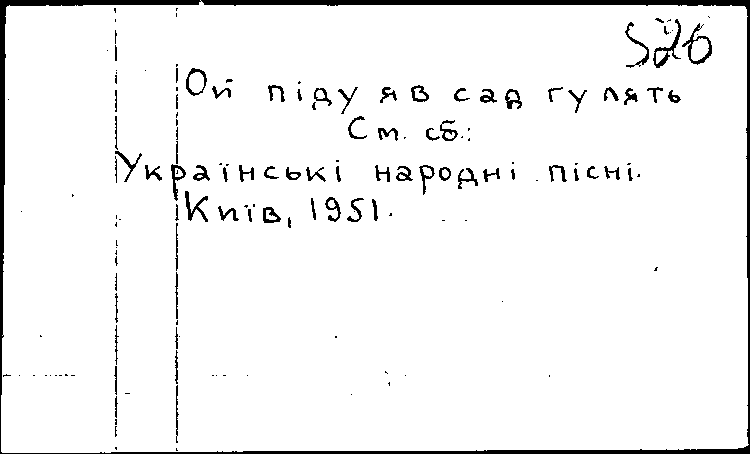 526
Ой піду я в сад гулять
См. сб.:
Українські народні пісні.
Київ, 1951.